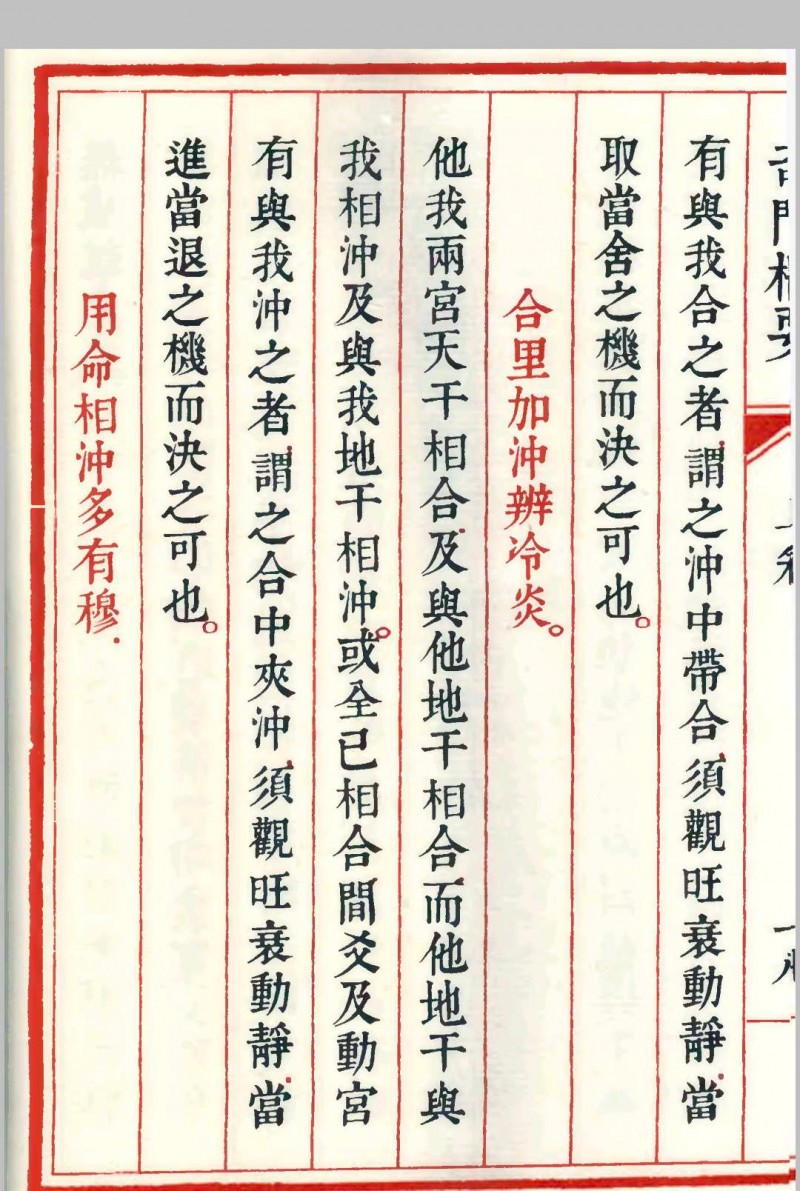 有與我合之者謂之沖中帶合須觀旺衰動靜當
取當舍之機而決之可也。
合里加沖辨冷炎。
他我兩宮天干相合及與他地干相合而他地干與
我相沖及與我地干相沖。或全已相合間爻及動宮
有與我沖之者謂之合中夾沖須觀旺衰動靜當
進當退之機而決之可也。
用命相沖多有穆.